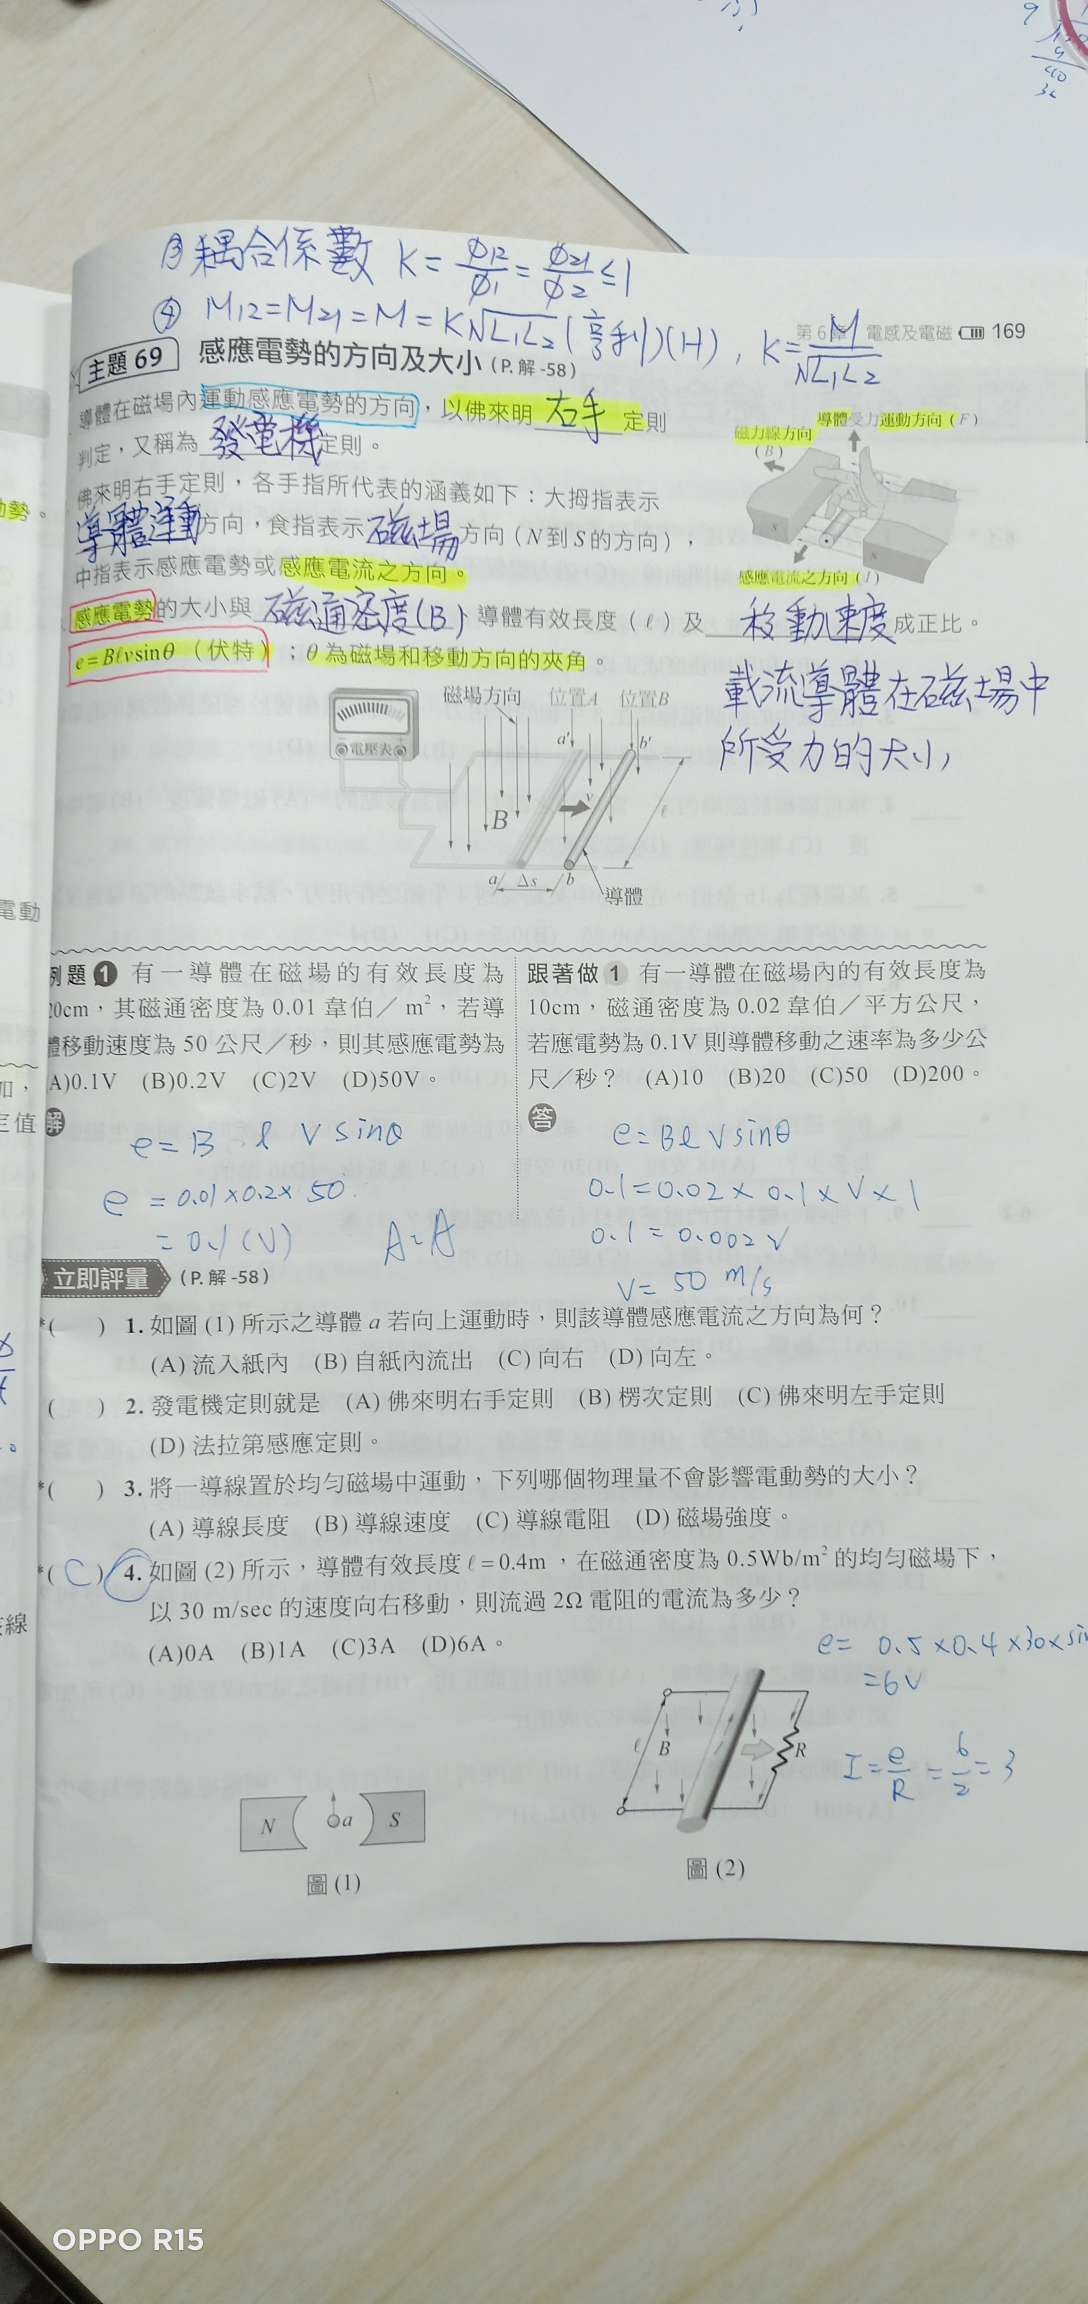 ③ 耦合係數 K = ϕ12/ϕ1 = ϕ21/ϕ2 ≤ 1
④ M12=M21=M=K√L1L2 (亨利)(H), K=M/√L1L2
第 6 章 電感及電磁 169
主題 69 感應電勢的方向及大小 (P.解-58)
導體在磁場內運動感應電勢的方向，以佛來明 右手 定則
判定，又稱為 發電機 定則。
佛來明右手定則，各手指所代表的涵義如下：大拇指表示
導體運動方向，食指表示 磁場 方向（N到S的方向），
中指表示感應電勢或感應電流之方向。
導體受力運動方向（F）
磁力線方向
（B）
S
S
感應電流之方向（I）
感應電勢的大小與 磁通密度(B)，導體有效長度（ℓ）及 移動速度 成正比。
e=Bℓvsinθ（伏特）；θ為磁場和移動方向的夾角。
載流導體在磁場中
所受力的大小
磁場方向 位置A 位置B
電壓表
a' b'
v
B
ℓ
a Δs b
導體
例題 1 有一導體在磁場的有效長度為
20cm，其磁通密度為 0.01 韋伯／m²，若導
體移動速度為 50 公尺／秒，則其感應電勢為
(A)0.1V (B)0.2V (C)2V (D)50V。
解
e = B ℓ V sinθ
e = 0.01×0.2×50
= 0.1 (V) A=A
跟著做 1 有一導體在磁場內的有效長度為
10cm，磁通密度為 0.02 韋伯／平方公尺，
若應電勢為 0.1V 則導體移動之速率為多少公
尺／秒？ (A)10 (B)20 (C)50 (D)200。
答
e=Bℓ V sinθ
0.1=0.02×0.1×V×1
0.1=0.002V
V= 50 m/s
立即評量 (P.解-58)
*( ) 1. 如圖 (1) 所示之導體 a 若向上運動時，則該導體感應電流之方向為何？
(A) 流入紙內 (B) 自紙內流出 (C) 向右 (D) 向左。
( ) 2. 發電機定則就是 (A) 佛來明右手定則 (B) 楞次定則 (C) 佛來明左手定則
(D) 法拉第感應定則。
*( ) 3. 將一導線置於均勻磁場中運動，下列哪個物理量不會影響電動勢的大小？
(A) 導線長度 (B) 導線速度 (C) 導線電阻 (D) 磁場強度。
*( C ) 4. 如圖 (2) 所示，導體有效長度 ℓ=0.4m，在磁通密度為 0.5Wb/m² 的均勻磁場下，
以 30 m/sec 的速度向右移動，則流過 2Ω 電阻的電流為多少？
(A)0A (B)1A (C)3A (D)6A。
e= 0.5×0.4×30×sin
=6V
I=e/R=6/2=3
N a S
圖 (1)
ℓ B R
圖 (2)
動勢。
電動
加，
定值
線
OPPO R15